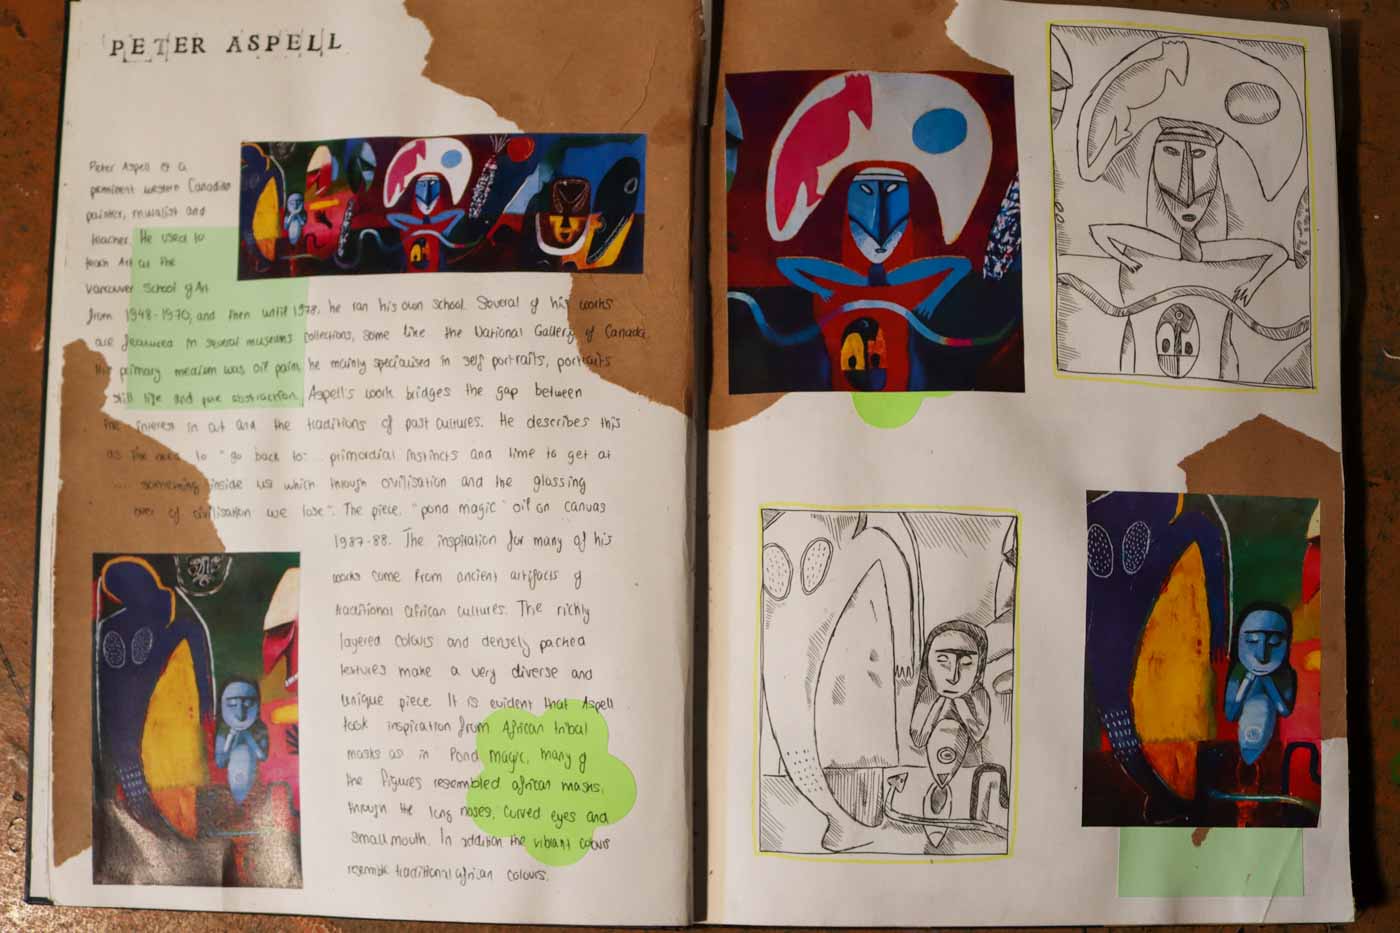 PETER ASPELL
Peter Aspell is a
prominent western Canadian
painter, muralist and
teacher. He used to
teach Art at the
Vancouver School of Art
from 1948-1970, and then until 1978, he ran his own school. Several of his works
are featured in several museums collections, some like the National Gallery of Canada.
His primary medium was oil paint, he mainly specialised in self portraits, portraits
still life and pure abstraction. Aspell's work bridges the gap between
the interest in art and the traditions of past cultures. He describes this
as the need to "go back to... primordial instincts and time to get at
.... something inside us which through civilisation and the glossing
over of civilisation we lose". The piece, "pond magic" oil on canvas
1987-88. The inspiration for many of his
works come from ancient artifacts of
traditional african cultures. The richly
layered colours and densely packed
textures make a very diverse and
unique piece. It is evident that Aspell
took inspiration from African tribal
masks as in Pond magic, many of
the figures resembled african masks,
through the long noses, curved eyes and
small mouth. In addition the vibrant colours
resemble traditional african colours.